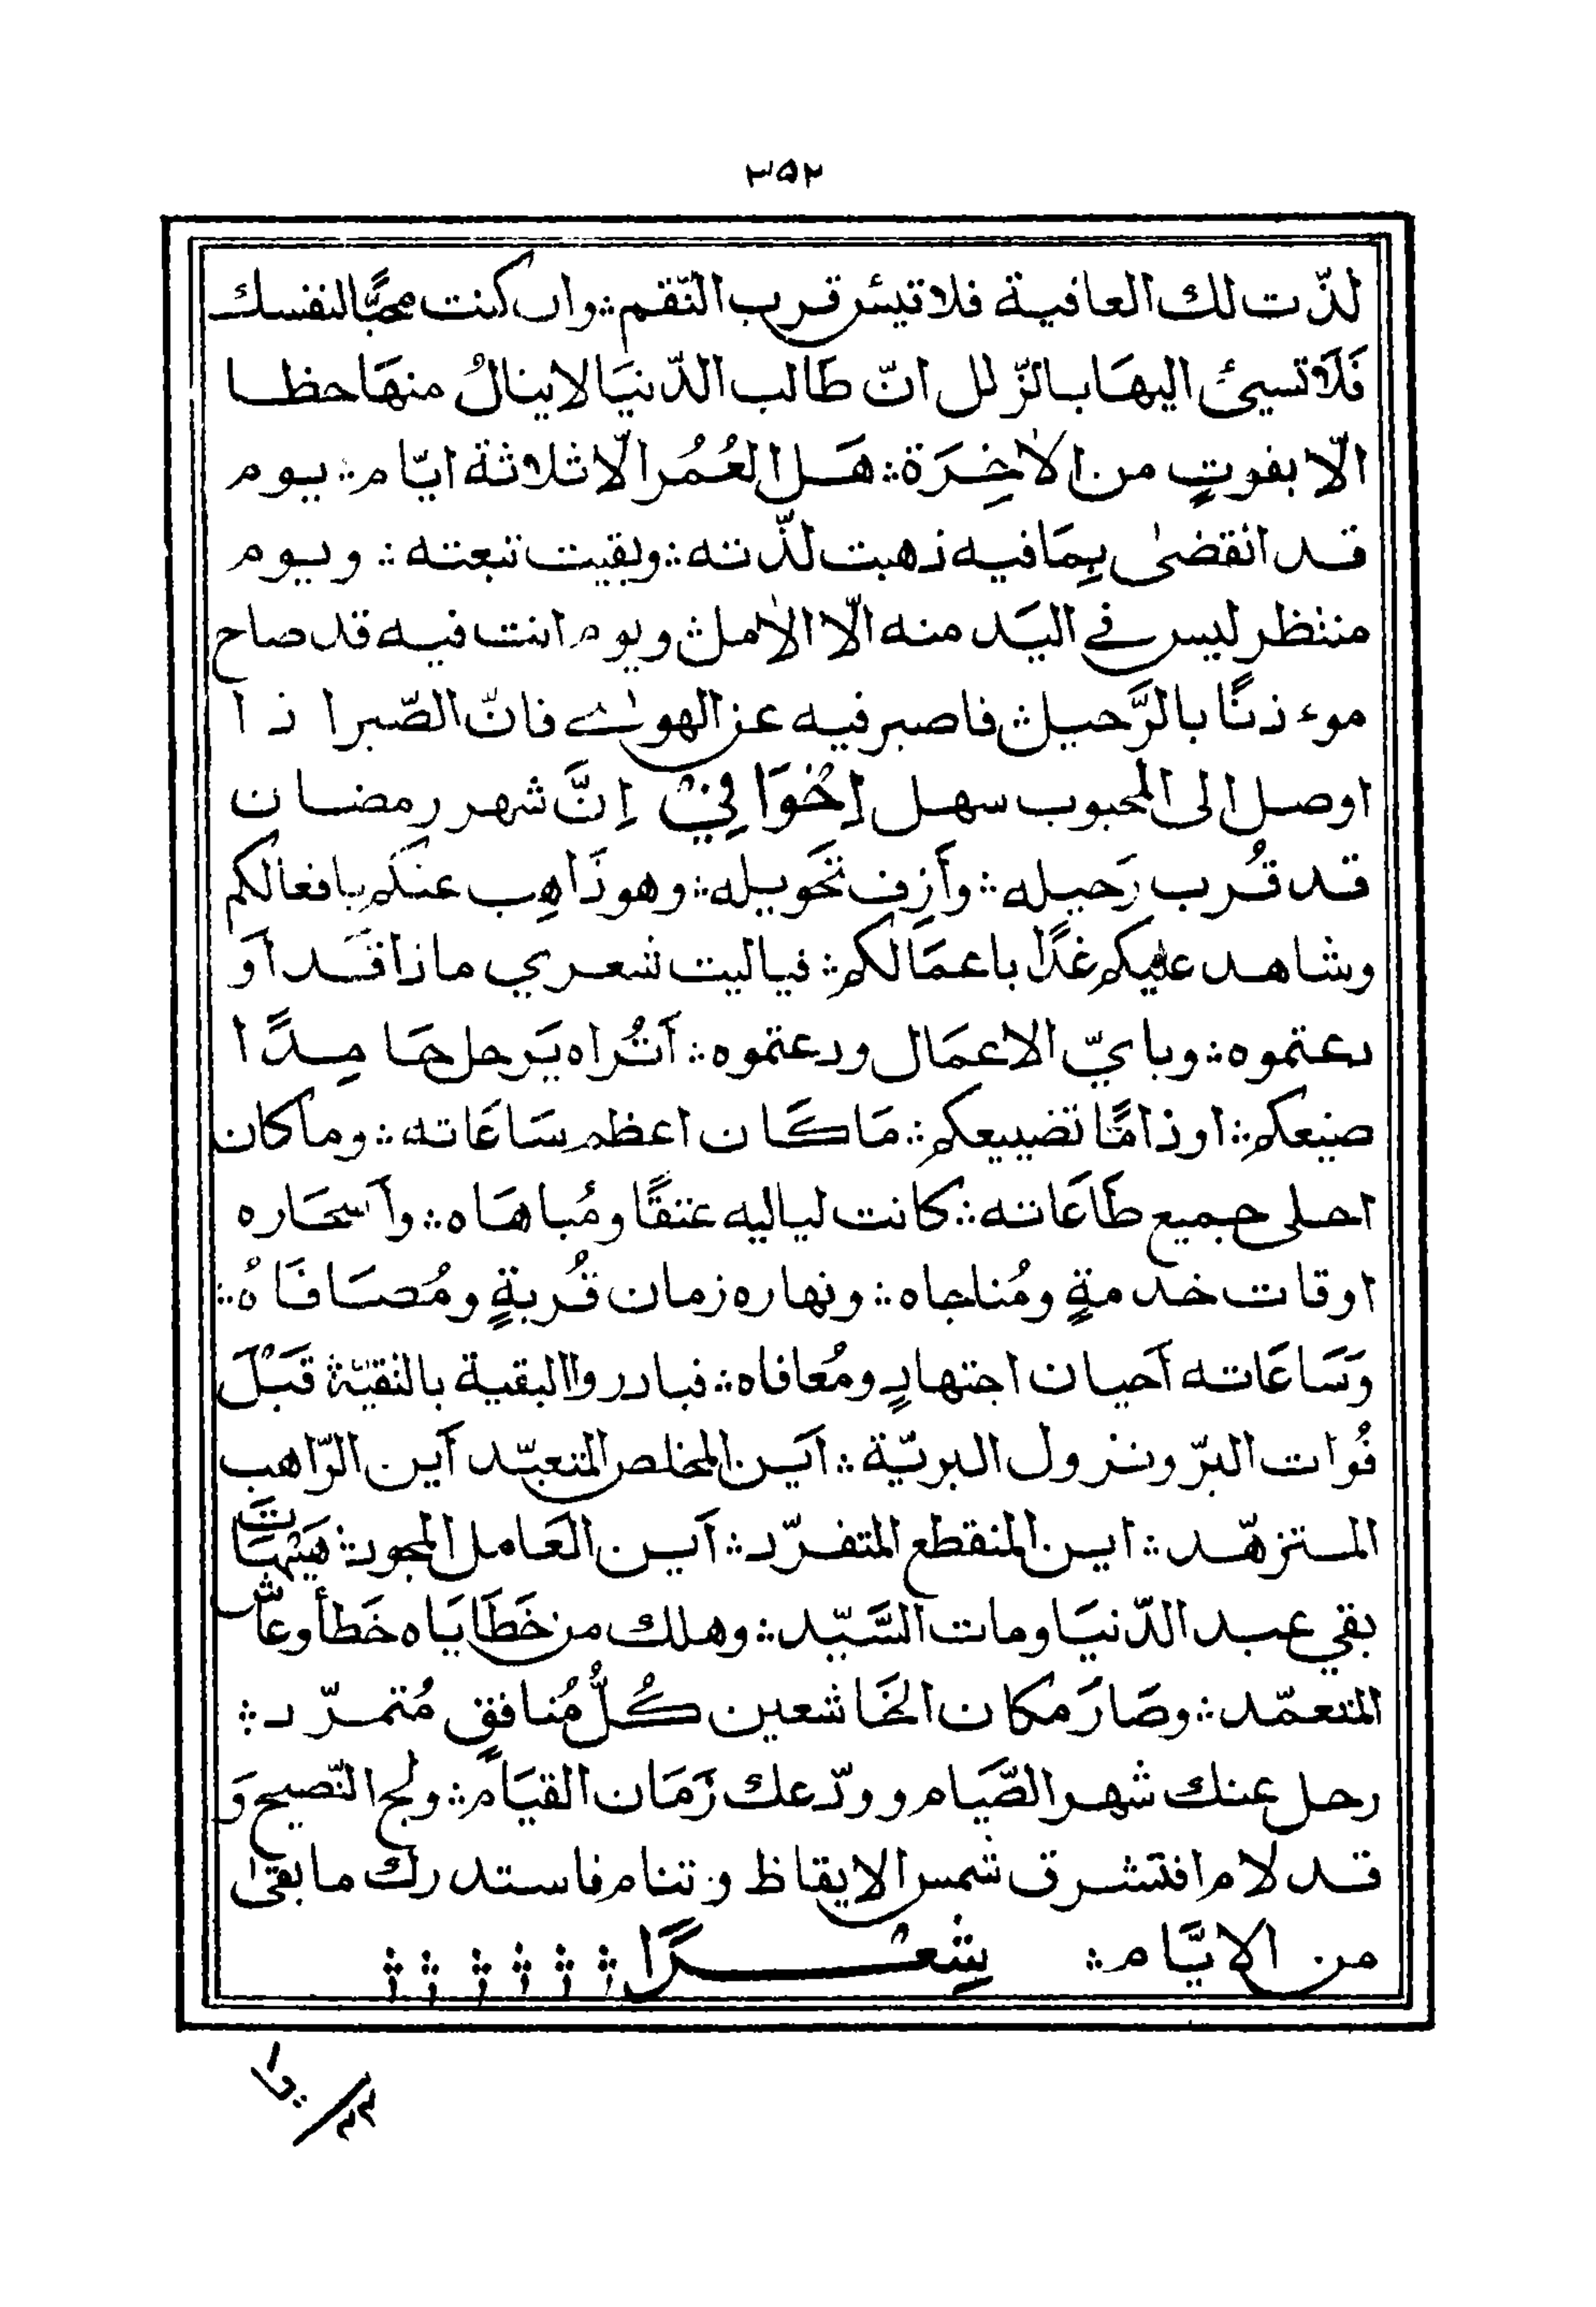 ٣٥٢
لذّت لك العافية فلا تيئس قرب النّقم ؞ وان كنت محبًّا لنفسك
فَلَا تسيئ اليهَا بالزّلل انّ طَالب الدّنيَا لا ينالُ منهَا حظا
الّا بفوتٍ من الاٰخِرَة ؞ هَل العُمُر الّا ثلاثة ايّام ؞ يوم
قد انقضىٰ بِمَا فيه ذهبت لذّته ؞ وبقيت تبعته ؞ ويوم
منتظر ليس في اليَد منه الّا الاٰمل ؞ ويوم انت فيه قد صاح
موءذنًا بالرَّحيل ؞ فاصبر فيه عن الهوٰے فانّ الصّبر اذا
اوصل الى المحبوب سهل إخْوَانِيْ ؞ إنَّ شهر رمضان
قد قُرب رَحيله ؞ وأَزِف تَحَويله ؞ وهو ذَاهِب عنكم بافعالكم
وشاهد عليكم غدًا باعمَالكم ؞ فياليت شعري ماذا قَد أَو
دعتموه ؞ وباىّ الاعمَال ودعتموه ؞ أَتُراه يَرحل حَامِدًا
صنيعكم ؞ او ذامًّا تضييعكم ؞ مَا كَان اعظم سَاعَاته ؞ وما كان
احلى جميع طَاعَاته ؞ كانت لياليه عتقًا ومُباهَاه ؞ وأَسحَاره
اوقات خدمةٍ ومُناجاه ؞ ونهاره زمان قُربةٍ ومُصَافَاهُ ؞
وَسَاعَاته أَحيان اجتهادٍ ومُعافاه ؞ فبادروا البقية بالنقيّة قَبْلَ
فُوات البرّ ونزول البريّة ؞ اَين المخلص المتعبّد اَين الرّاهب
المتزهّد ؞ اين المنقطع المتفرّد ؞ اَين العَامل المجود ؞ هَيْهَاتَ
بقي عبد الدّنيَا ومات السَّيّد ؞ وهلك من خَطَايَاه خَطأ وعاش
المتعمّد ؞ وصَارَ مكان الخَاشعين كُلُّ مُنافقٍ مُتمرّد ؞
رحل عنك شهر الصَّيَام وودّعك زَمَان القيَام ؞ ولج النّصيح وَ
قد لام افتشرق شمس الايقاظ وتنام فاستدرك ما بقىٰ
من الايَّام ؞ شِعْرًا ؞ ؞ ؞ ؞ ؞ ؞